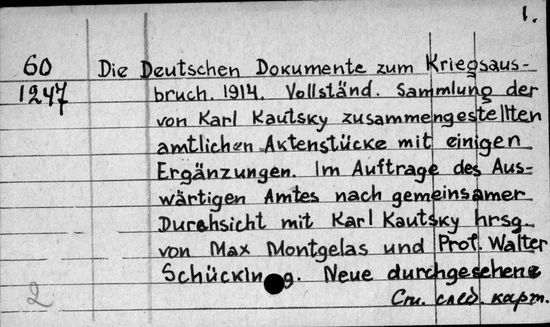 1.
60 Die Deutschen Dokumente zum Kriegsaus-
1247 bruch. 1914. Vollständ. Sammlung der
von Karl Kautsky zusammengestellten
amtlichen Aktenstücke mit einigen
Ergänzungen. Im Auftrage des Aus-
wärtigen Amtes nach gemeinsamer
Durchsicht mit Karl Kautsky hrsg.
von Max Montgelas und Prof. Walter
Schücking. Neue durchgesehene
2 См. след. карт.